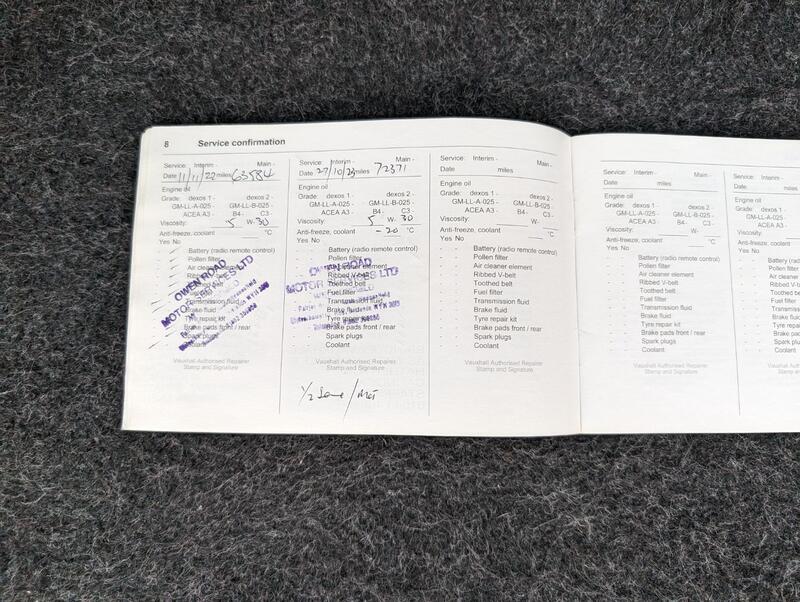 8 Service confirmation
Service: Interim - Main -
Date 11/11/22 miles 63584
Engine oil
Grade: dexos 1 - dexos 2 -
GM-LL-A-025 - GM-LL-B-025 -
ACEA A3 - B4 - C3 -
Viscosity: 5 W- 30
Anti-freeze, coolant °C
Yes No
Battery (radio remote control)
Pollen filter
Air cleaner element
Ribbed V-belt
Toothed belt
Fuel filter
Transmission fluid
Brake fluid
Tyre repair kit
Brake pads front / rear
Spark plugs
Coolant
OWEN ROAD
MOTOR
LTD
Vauxhall Authorised Repairer
Stamp and Signature
Service: Interim - Main -
Date 27/10/23 miles 72371
Engine oil
Grade: dexos 1 - dexos 2 -
GM-LL-A-025 - GM-LL-B-025 -
ACEA A3 - B4 - C3 -
Viscosity: 5 W- 30
Anti-freeze, coolant - 20 °C
Yes No
Battery (radio remote control)
Pollen filter
Air cleaner element
Ribbed V-belt
Toothed belt
Fuel filter
Transmission fluid
Brake fluid
Tyre repair kit
Brake pads front / rear
Spark plugs
Coolant
OWEN ROAD
MOTOR LTD
Vauxhall Authorised Repairer
Stamp and Signature
1/2
Service: Interim - Main -
Date miles
Engine oil
Grade: dexos 1 - dexos 2 -
GM-LL-A-025 - GM-LL-B-025 -
ACEA A3 - B4 - C3 -
Viscosity: W-
Anti-freeze, coolant °C
Yes No
Battery (radio remote control)
Pollen filter
Air cleaner element
Ribbed V-belt
Toothed belt
Fuel filter
Transmission fluid
Brake fluid
Tyre repair kit
Brake pads front / rear
Spark plugs
Coolant
Vauxhall Authorised Repairer
Stamp and Signature
Service: Interim - Main -
Date miles
Engine oil
Grade: dexos 1 - dexos 2 -
GM-LL-A-025 - GM-LL-B-025 -
ACEA A3 - B4 - C3 -
Viscosity: W-
Anti-freeze, coolant °C
Yes No
Battery (radio remote control)
Pollen filter
Air cleaner element
Ribbed V-belt
Toothed belt
Fuel filter
Transmission fluid
Brake fluid
Tyre repair kit
Brake pads front / rear
Spark plugs
Coolant
Vauxhall Authorised Repairer
Stamp and Signature
Service: Interim
Date
Engine oil
Grade: dexos 1 -
GM-LL-A-025
ACEA A3
Viscosity:
Anti-freeze, coolant
Yes No